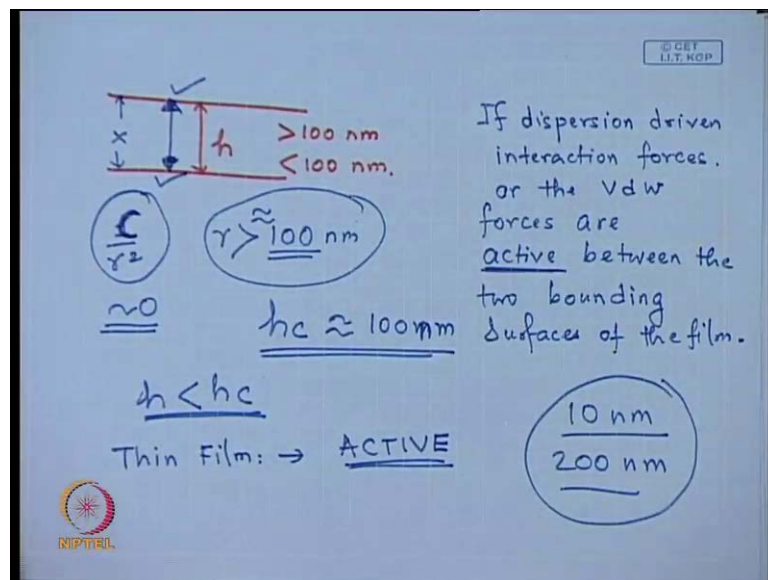 © CET
I.I.T. KGP
x
h
>100 nm
<100 nm.
C
r²
r > ≈ 100 nm
~0
hc ≈ 100 nm
h < hc
Thin Film: → ACTIVE
If dispersion driven
interaction forces.
or the Vdw
forces are
active between the
two bounding
Surfaces of the film.
10 nm
200 nm
NPTEL